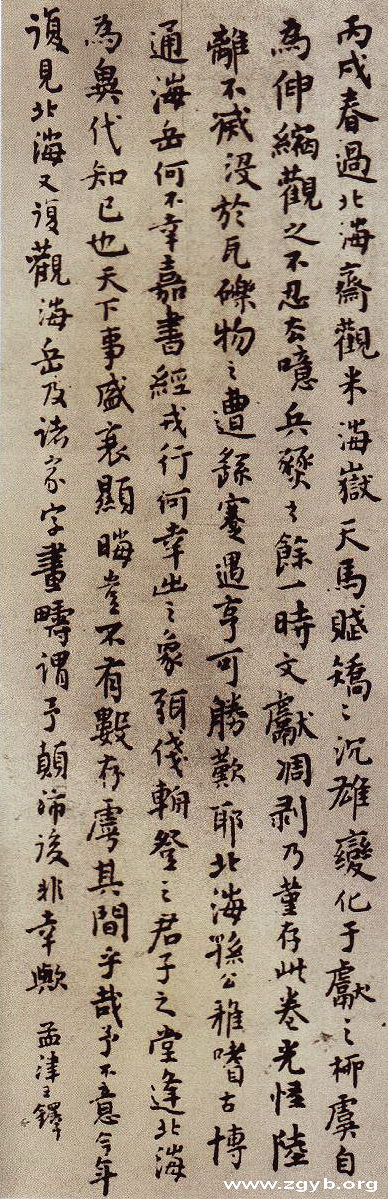 丙戌春過北海齋觀米海嶽天馬賦矯〻沉雄變化于獻〻柳虞自
為伸縮觀之不忍去噫兵燹〻餘一時文獻凋剥乃堇存此卷光怪陸
離不減沒於瓦礫物〻遭蹇遇亨可勝歎耶北海孫公雅嗜古博
通海岳何不幸嘉書經戎行何幸出〻象弭倰輈登〻君子之堂逢北海
為異代知己也天下事盛衰顯晦豈不有數存虖其間乎哉予不意今年
復見北海又復觀海岳及諸家字畫疇謂予顛沛後非幸歟 孟津王鐸
www.zgyb.org